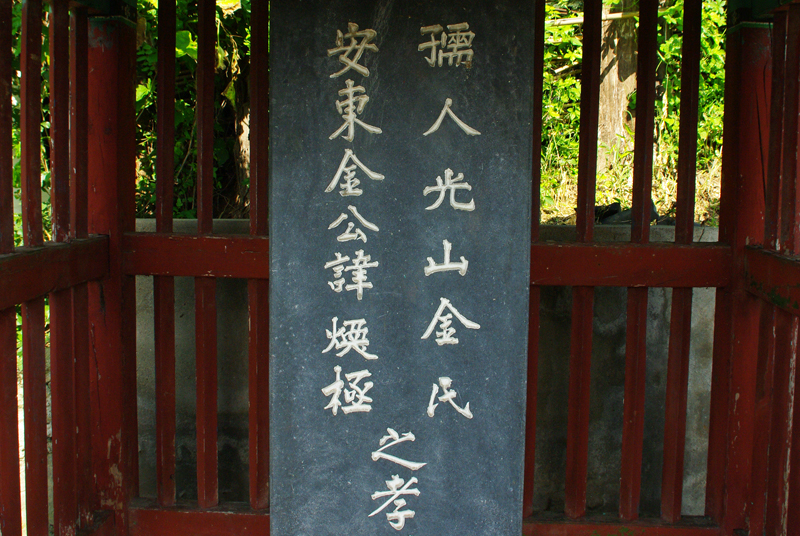 孺人光山金氏
安東金公諱煥極
之孝